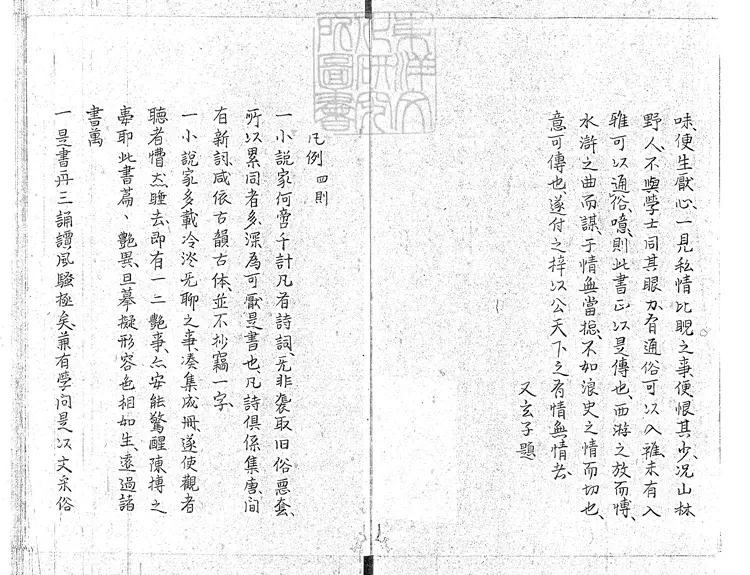 味、便生厭心、一見私情比睨之事便恨其少、况山林
野人、不與學士同其眼力、有通俗可以入雅、未有入
雅可以通俗、噫、則此書正以是傳也、西游之放而愽、
水滸之曲而謀、于情無當揔、不如浪史之情而切也、
意可傳也、遂付之梓以公天下之有情無情者、
又玄子題
凡例四則
一小說家何啻千計凡有詩詞、无非襲取旧俗惡套、
所以累同者多、深為可厭是書也、凡詩俱係集唐、间
有新詞咸依古韻古体、並不抄竊一字、
一小說家多載冷淡无聊之事、凑集成冊、遂使觀者
聽者懵然睡去即有一二艷事、亦安能驚醒陳摶之
夢耶此書篇、艷異、且摹擬形容色相如生、遠過諸
書萬
一是書再三誦讀風騷極矣、兼有學问是以文采俗
東洋文化研究所圖書